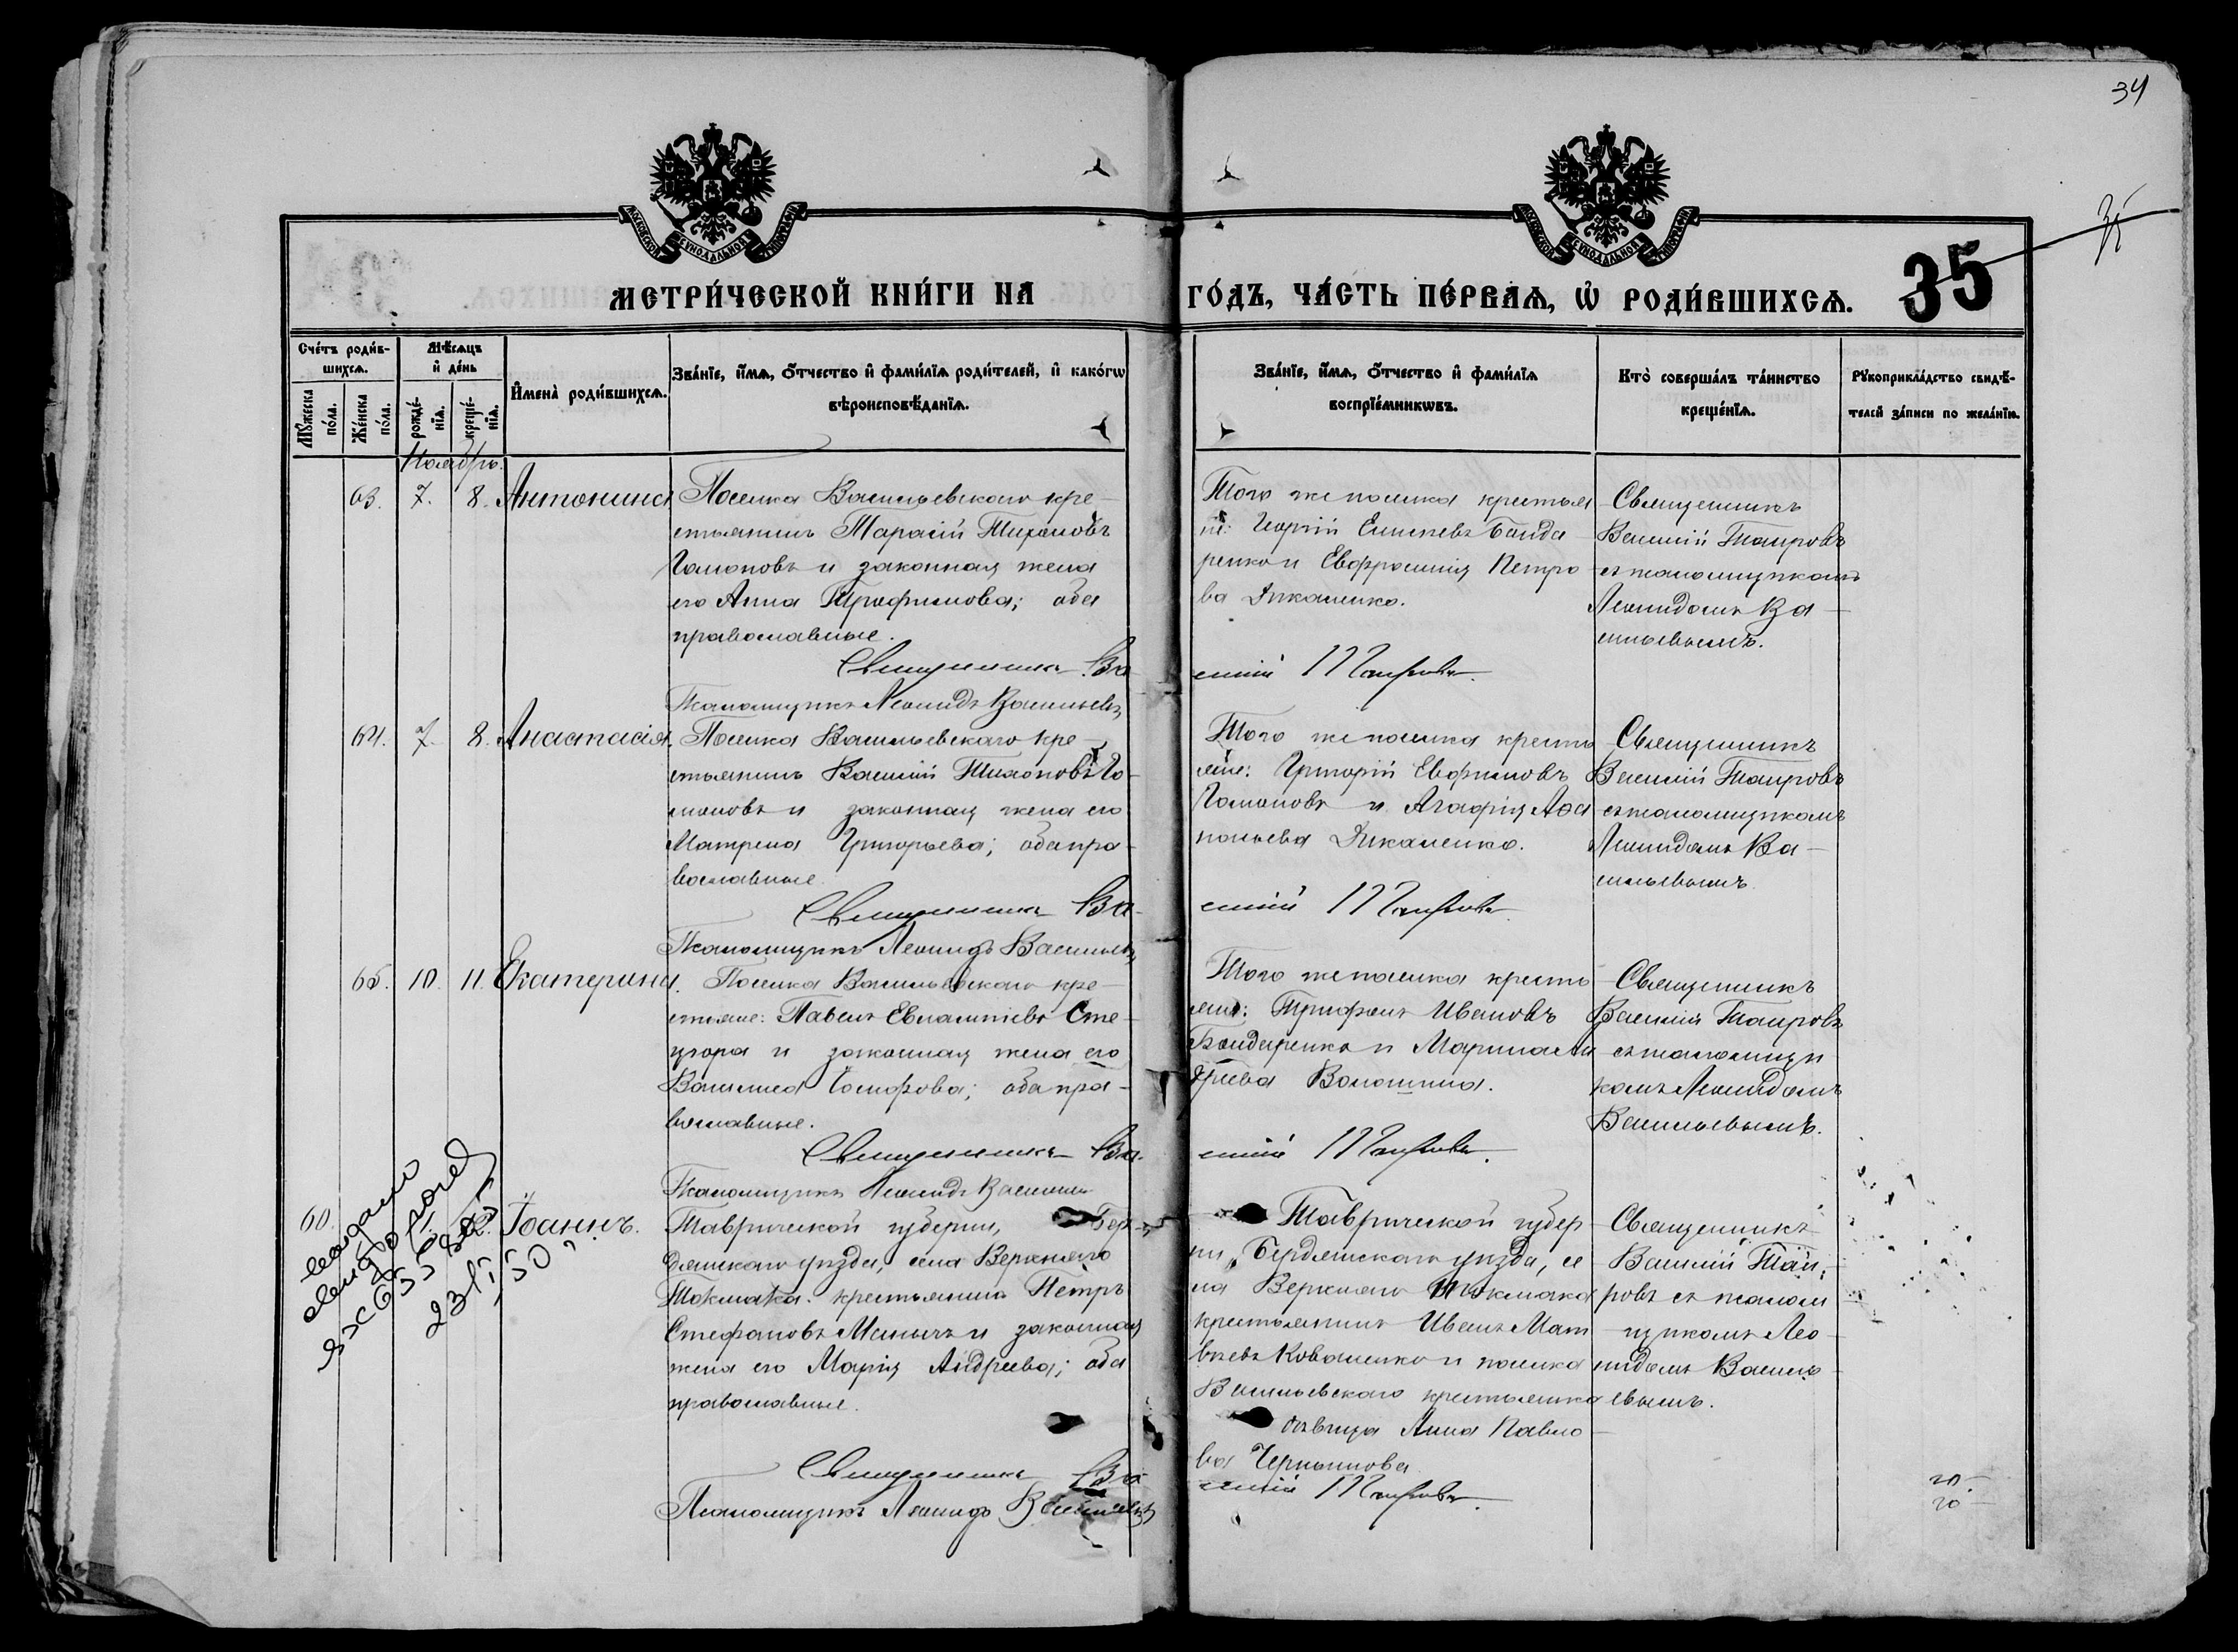 34
35
МОСКОВСКОЙ СѴНОДАЛЬНОЙ ТИПОГРАФІИ
МОСКОВСКОЙ СѴНОДАЛЬНОЙ ТИПОГРАФІИ
35
МЕТРИ́ЧЕСКОЙ КНИ́ГИ НА ГО́ДЪ, ЧА́СТЬ ПЕ́РВАѦ, Ѡ҆ РОДИ́ВШИХСѦ.
Сче́тъ роди́в-
шихсѧ.
Мѣ́сѧцъ
и҆ де́нь
Мꙋ́жеска
по́ла.
Же́нска
по́ла.
рожде́-
нїѧ.
креще́-
нїѧ.
И҆мена̀ роди́вшихсѧ.
Зва́нїе, и҆́мѧ, ѻ҆́тчество и҆ фами́лїѧ роди́телей, и҆ како́гѡ
вѣроисповѣ́данїѧ.
Зва́нїе, и҆́мѧ, ѻ҆́тчество и҆ фами́лїѧ
воспрїе́мникѡвъ.
Кто̀ соверша́лъ та́инство
креще́нїѧ.
Рꙋкоприкла́дство свидѣ́-
телей за́писи по жела́нїю.
Ноябрь.
63. 7. 8. Антонина
Поселка Васильевскаго кре-
стьянинъ Тарасій Тихоновъ
Гамоновъ и законная жена
его Анна Трофимова; оба
православные.
Того же поселка крестья
не: Георгій Елисеевъ Бонда
ренко и Евфросинія Петро
ва Дикаленко.
Священникъ
Василій Таировъ
съ псаломщикомъ
Леонидомъ Ва-
сильевымъ.
Священникъ Василій Таировъ.
Псаломщикъ Леонидъ Васильевъ
64. 7. 8. Анастасія.
Поселка Васильевскаго кре-
стьянинъ Василій Тихоновъ Га-
моновъ и законная жена его
Матрена Григорьева; оба пра-
вославные
Того же поселка кресть
яне: Григорій Евфимовъ
Гамоновъ и Агафія Афа
насьева Дикаленко.
Священникъ
Василій Таировъ
съ псаломщикомъ
Леонидомъ Ва-
сильевымъ
Священникъ Василій Таировъ.
Псаломщикъ Леонидъ Васильевъ
65. 10. 11. Екатерина.
Поселка Васильевскаго кре-
стьяне: Павелъ Евлампіевъ Сте-
цюра и законная жена его
Василиса Іосифова; оба пра-
вославные.
Того же поселка кресть
яне: Трифонъ Ивановъ
Бондаренко и Марина Ан
дреева Волошина.
Священникъ
Василій Таировъ
съ псаломщи
комъ Леонидомъ
Васильевымъ.
Священникъ Василій Таировъ.
Псаломщикъ Леонидъ Васильевъ
60. Іоаннъ.
Таврической губерніи, Бер-
дянскаго уѣзда, села Верхняго
Токмака крестьянинъ Петръ
Стефановъ Маничъ и законная
жена его Марія Андреева; оба
православные.
Таврической губер
ніи, Бердянскаго уѣзда, се
ла Верхняго Токмака
крестьянинъ Иванъ Мат
вѣевъ Коваленко и поселка
Васильевскаго крестьянка
дѣвица Анна Павло
ва Чернышова.
Священникъ
Василій Таи,
ровъ съ псалом
щикомъ Лео-
нидомъ Василь-
евымъ.
Священникъ Василій Таировъ.
Псаломщикъ Леонидъ Васильевъ
20.
20